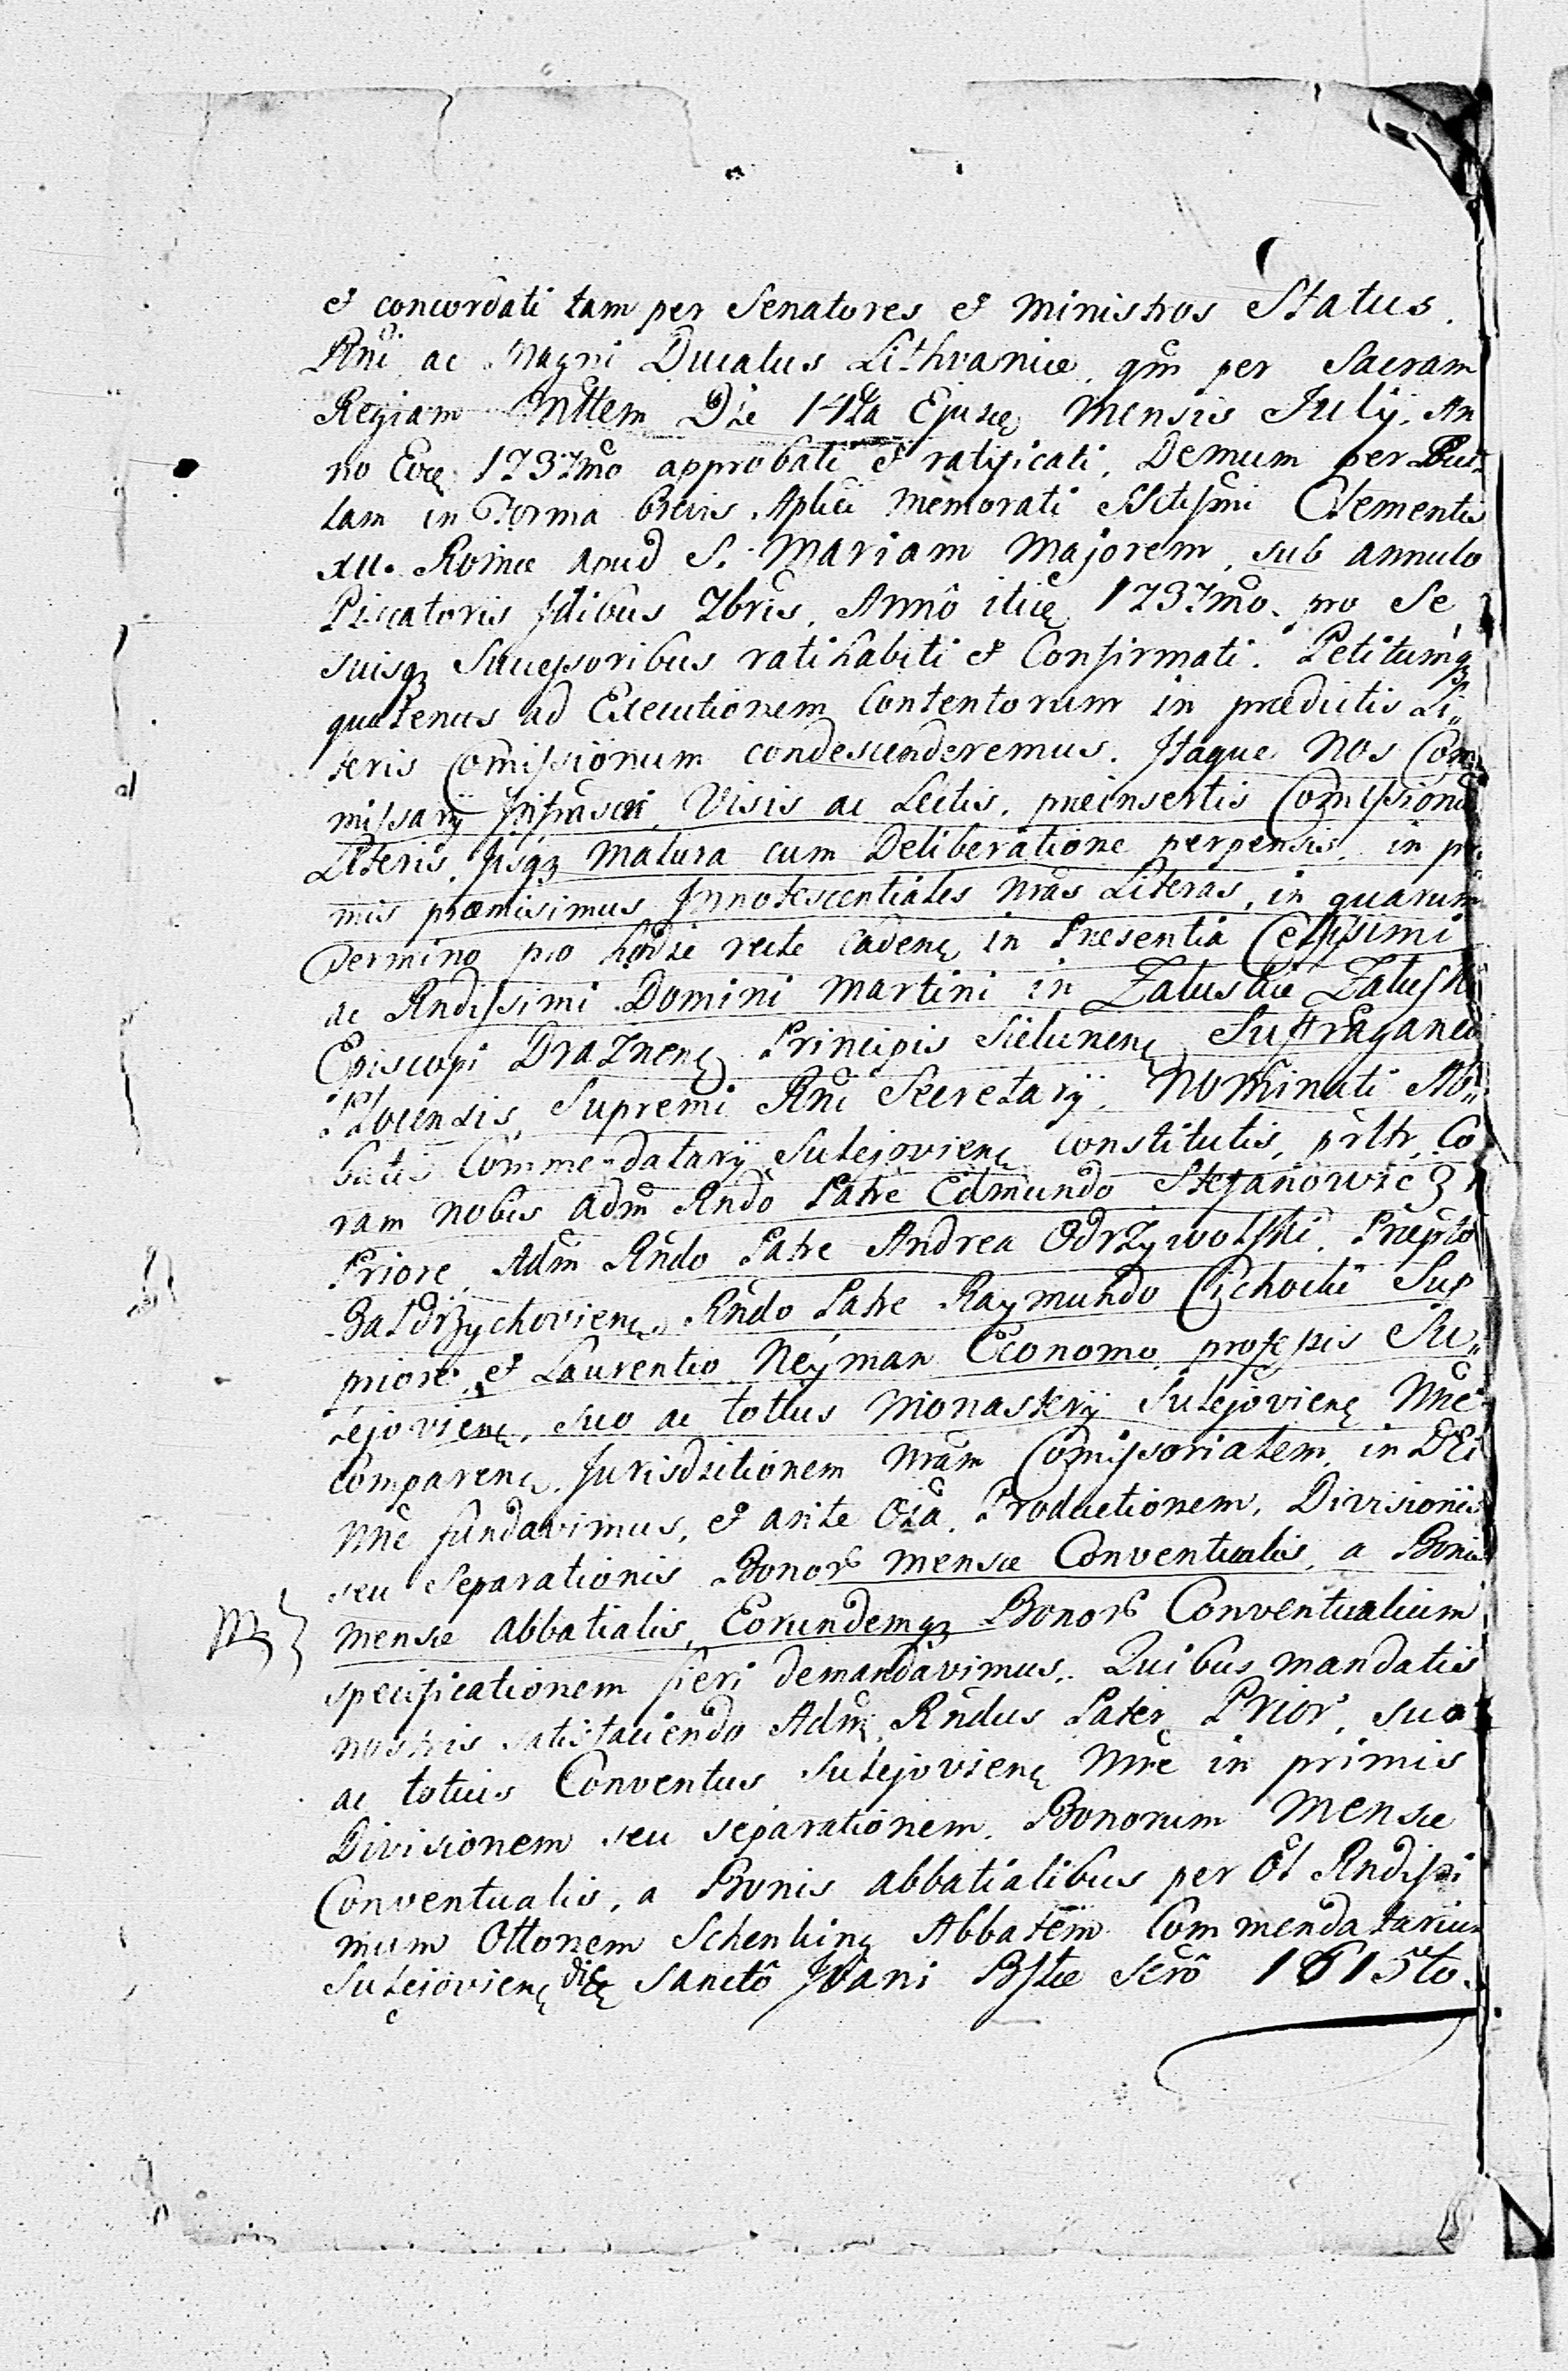 et concordati tam per Senatores et Ministros Status.
Rni ac Magni Ducatus Lithvaniæ, qm per Sacram
Regiam Mttem Die 14ta Ejusdę Mensis Julij. An
no Eodę 1737mo approbati et ratificati. Demum per Bul
lam in Forma Brevis Aplici memorati SSctissimi Clementis
XII. Romæ apud S. Mariam Majorem, sub annulo
Piscatoris Idibus 7bris, Anno itidę 1737mo. pro Se,
suisqz Successoribus ratihabiti et Confirmati. Petitumqz
quatenus ad Executionem Contentorum in prædictis Li„
teris Comissionum condescenderemus. Itaque Nos Com
missarij Infrascri, Visis ac Lectis, præinsertis Comissionu
Literis, Ijsqz matura cum Deliberatione perpensis, in pri
mis præmisimus Innotescentiales nras Literas, in quarum
Termino pro hodie recte cadenę in Presentia Celsissimi
ac Rndissimi Domini Martini in Załuskie Załuski
Episcopi Draznenę, Principis Sielunenę Suffraganei
Plocensis, Supremi Rni Secretarij, Nominati Ab„
batis Commendatarij Sulejovienę constitutis, prltr, Co
ram nobis Adm Rndo Patre Edmundo Stefanowicz
Priore, Adm Rndo Patre Andrea Odrzywolski, Præpto
Baldrzychovienę, Rndo Patre Raymundo Cichocki Sup
priore, et Laurentio Neyman Œconomo, professis Su„
lejovienę, suo ac totius Monasterij Sulejovienę Nne
comparenę, Jurisdictionem nram Comissorialem, in DEI
Nne fundavimus, et ante Oia, Productionem, Divisionis
seu Separationis Bonor mensæ Conventualis, a Bonis
mensæ abbatialis, Eorundemqz Bonor Conventualium
specificationem fieri demandavimus. Quibus mandatis
nostris satisfaciendo Adm, Rndus Pater Prior, suo
ac totius Conventus Sulejovienę Nne in primis
Divisionem seu separationem Bonorum Mensæ
Conventualis, a Bonis abbatialibus per Ol Rndissi
mum Ottonem Schenking Abbatem Commendatarium
Sulejovienę die Sancto Joani Bstæ Scro 1615to.